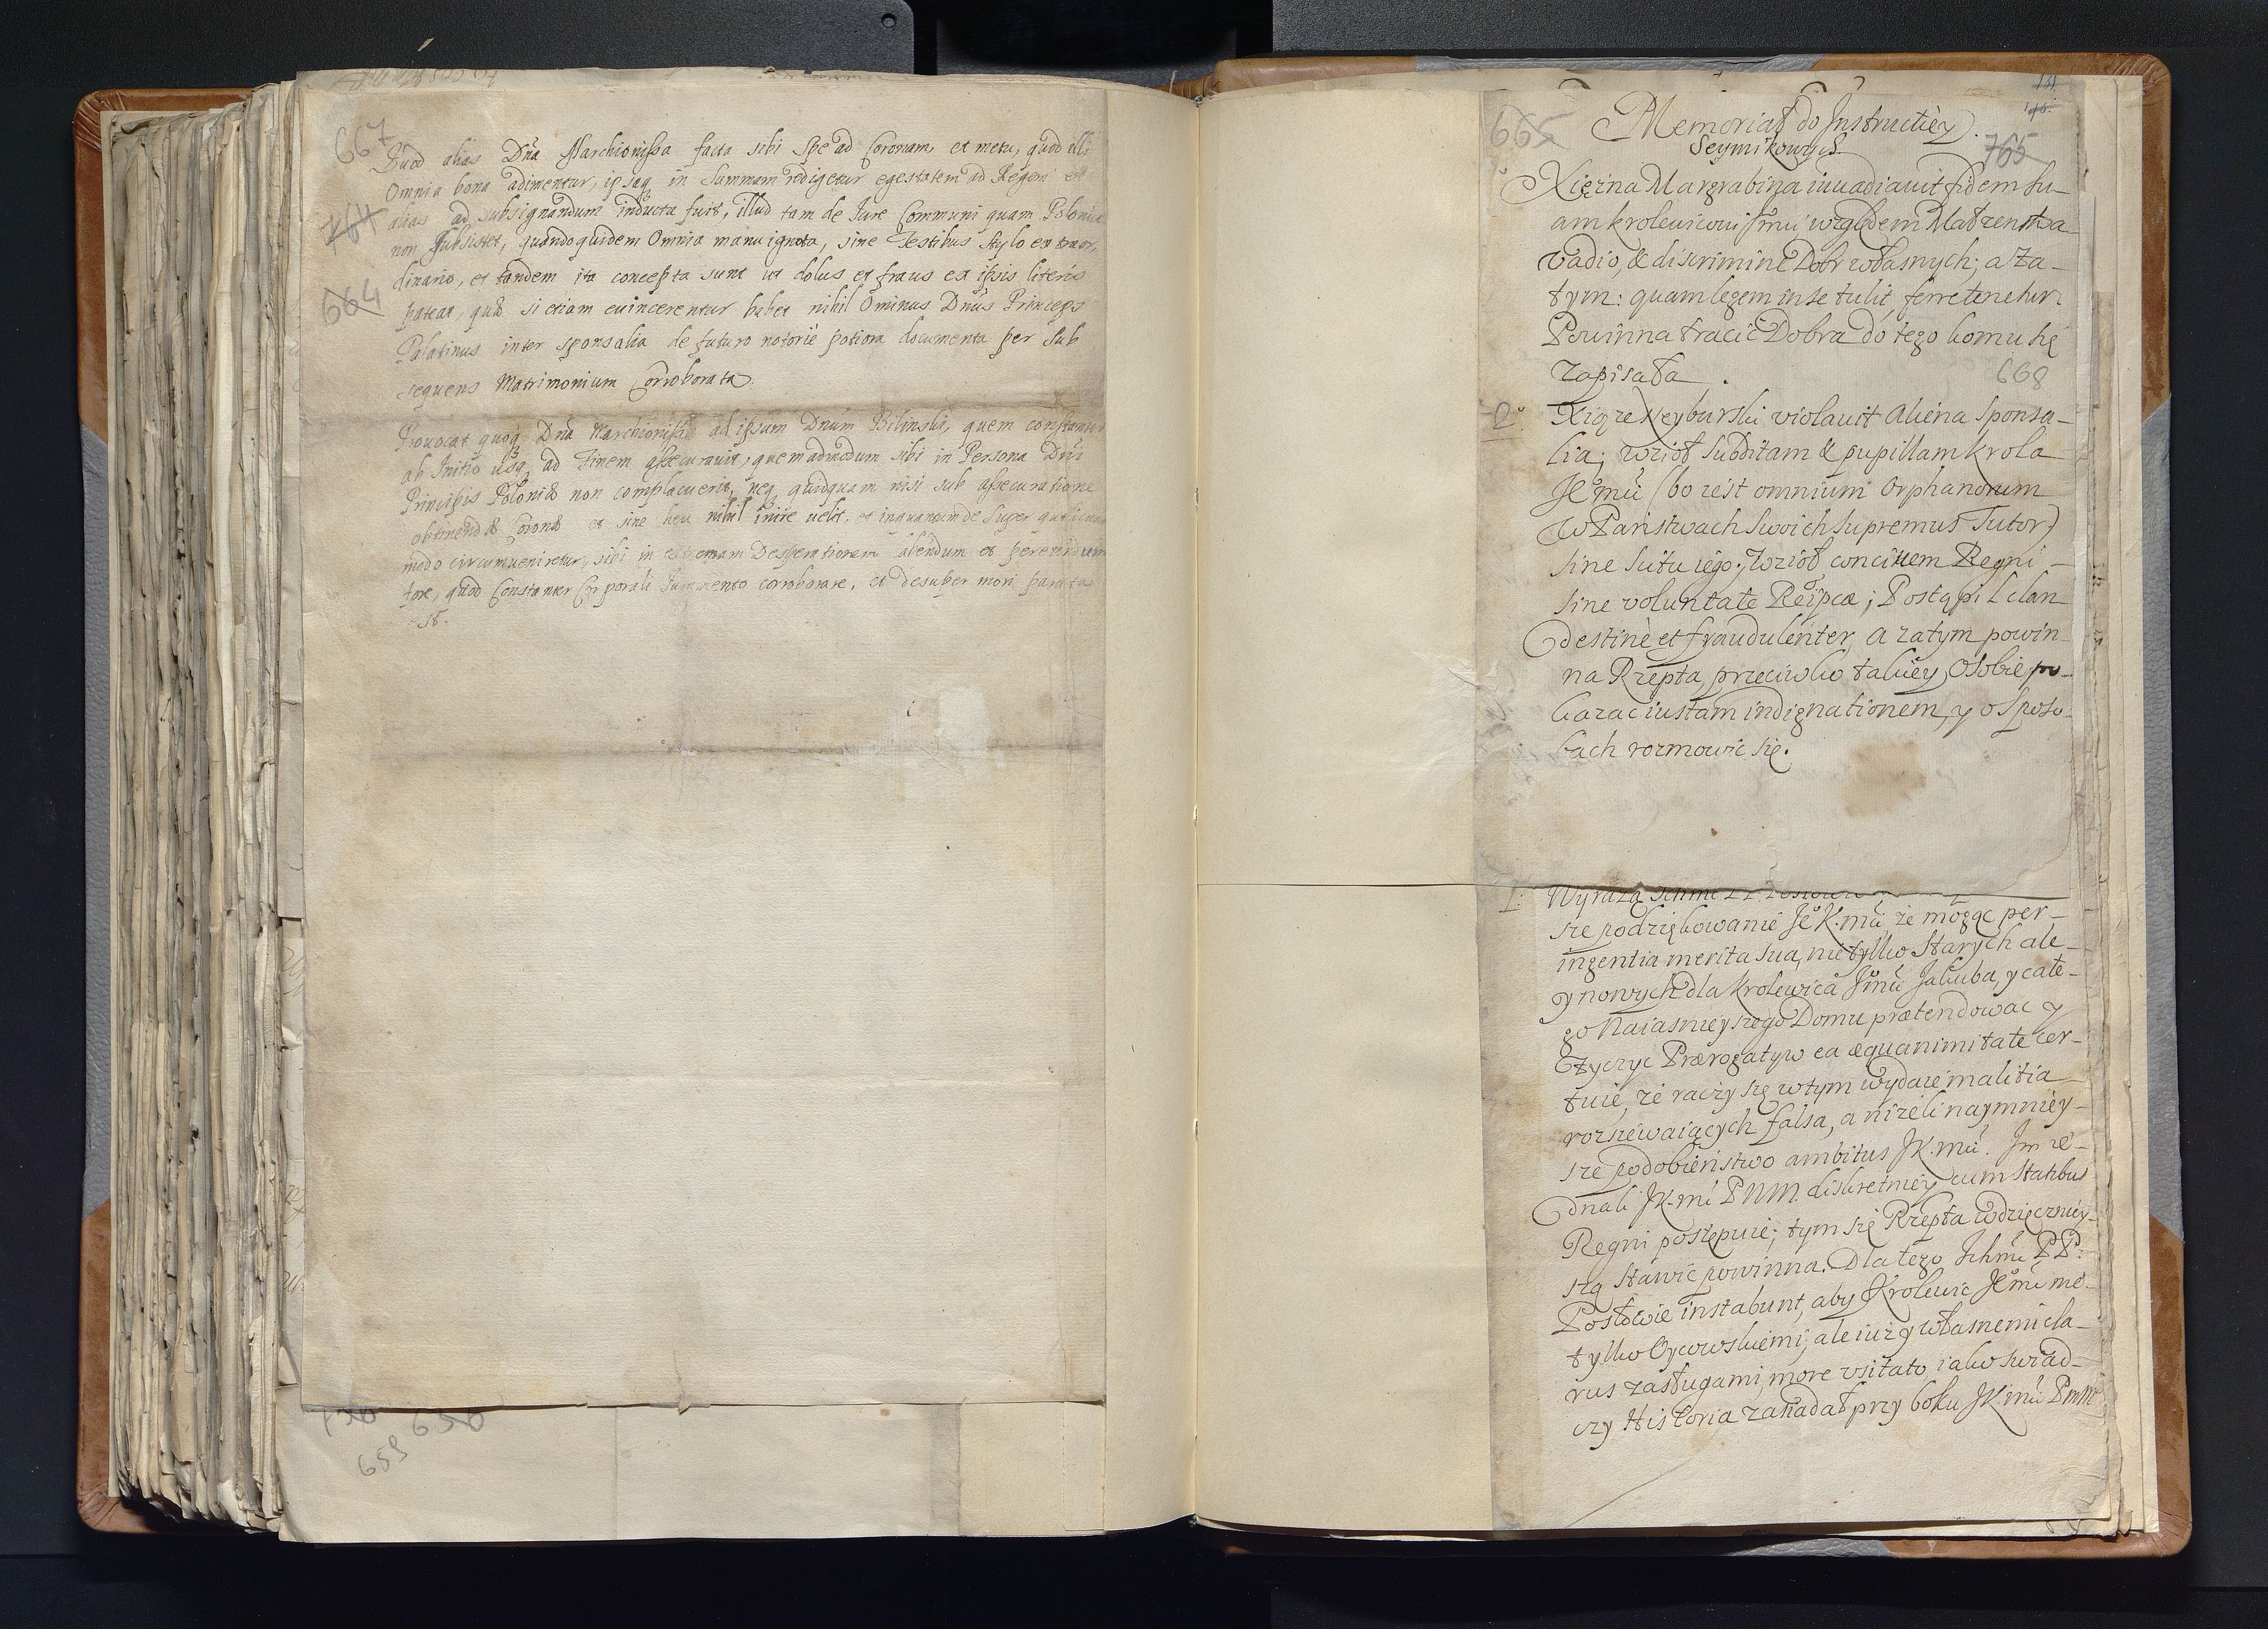 667
Quod alias Dna Marchionissa facta sibi Spe ad Coronam, et metu, quod illi
Omnia bona adimentur, ipsaq in Summam redigetur egestatem ad Regem et
alias ad subsignandum inducta fuit, illud tam de Iure Communi quam Polonico
764
non Subsistet, quandoquidem Omnia manu ignota, sine Testibus stylo extraor-
dinario, et tandem ita concepta sunt ut dolus et fraus ex ipsis literis
664
pateat, quæ si etiam evincerentur habet nihil Ominus Dnus Princeps
Palatinus inter sponsalia de futuro notorie potiora documenta per Sub
sequens Matrimonium Corroborata.
Provocat quoq Dna Marchionissa ad ipsum Dnum Bilinski, quem constanter
ab Initio usq ad Finem assecuravit, quemadmodum sibi in Persona Dni
Principis Poloniæ non complacuerit, neq quidquam nisi sub assecuratione
obtinendæ Coronæ et sine heu nihil inire velit, et inquantum de Super
modo circumveniretur, sibi in extremam Desperationem abeundum et pereundum
fore, quod Constanter Corporali Iuramento corroborare, et desuper mori parata
est.
659 650
665
Memoriał do Instructiey
Seymikowych.
765
Xiężna Margrabina invadiavit fidem su-
am krolewicowi Jmci względem Małżenstwa
Vadio, & discrimine Dobr własnych; a za-
tym: quam legem in se tulit, ferre tenetur.
Powinna tracić Dobra do tego komu się
zapisała.
668
2. Xiąże Neyburski violavit aliena sponsa-
lia; wziął subditam & pupillam krola
Je mci (bo iest omnium Orphanorum
w Panstwach swoich supremus Tutor)
sine scitu iego; Wziął concivem Regni
sine voluntate Reipcæ; Postąpił clan
destine et fraudulenter, a zatym powin-
na Rzepta przeciwko takiey Osobie po-
kazac iustam indignationem, y o sposo-
bach rozmowić się.
1. Wyrażą Ichmc
sze podziękowanie Je K. mci, że mogąc per
ingentia merita sua, nie tylko starych ale
y nowych dla Krolewica Jmci Jakuba, y całe-
go Naiasnieyszego Domu prætendowac y
życzyc Prærogatyw ea æquanimitate cer-
tuie, że raczy się w tym wydaie malitia
rozsiewaiących falsa, a niżeli naymniey-
sze podobieństwo ambitus JK. mci. Im ie-
dnak JK. mć PNM. diskretniey cum statibus
Regni postępuie; tym się Rzepta wdzięczniey-
szą stawić powinna. Dla tego Ichmć PP:
Posłowie instabunt, aby Krolewic Jemć nie
tylko Oycowskiemi, ale iuż y własnemi cla-
rus zasługami, more usitato, iako swiad-
czy Historia zasiadał przy boku JK. mci PnM